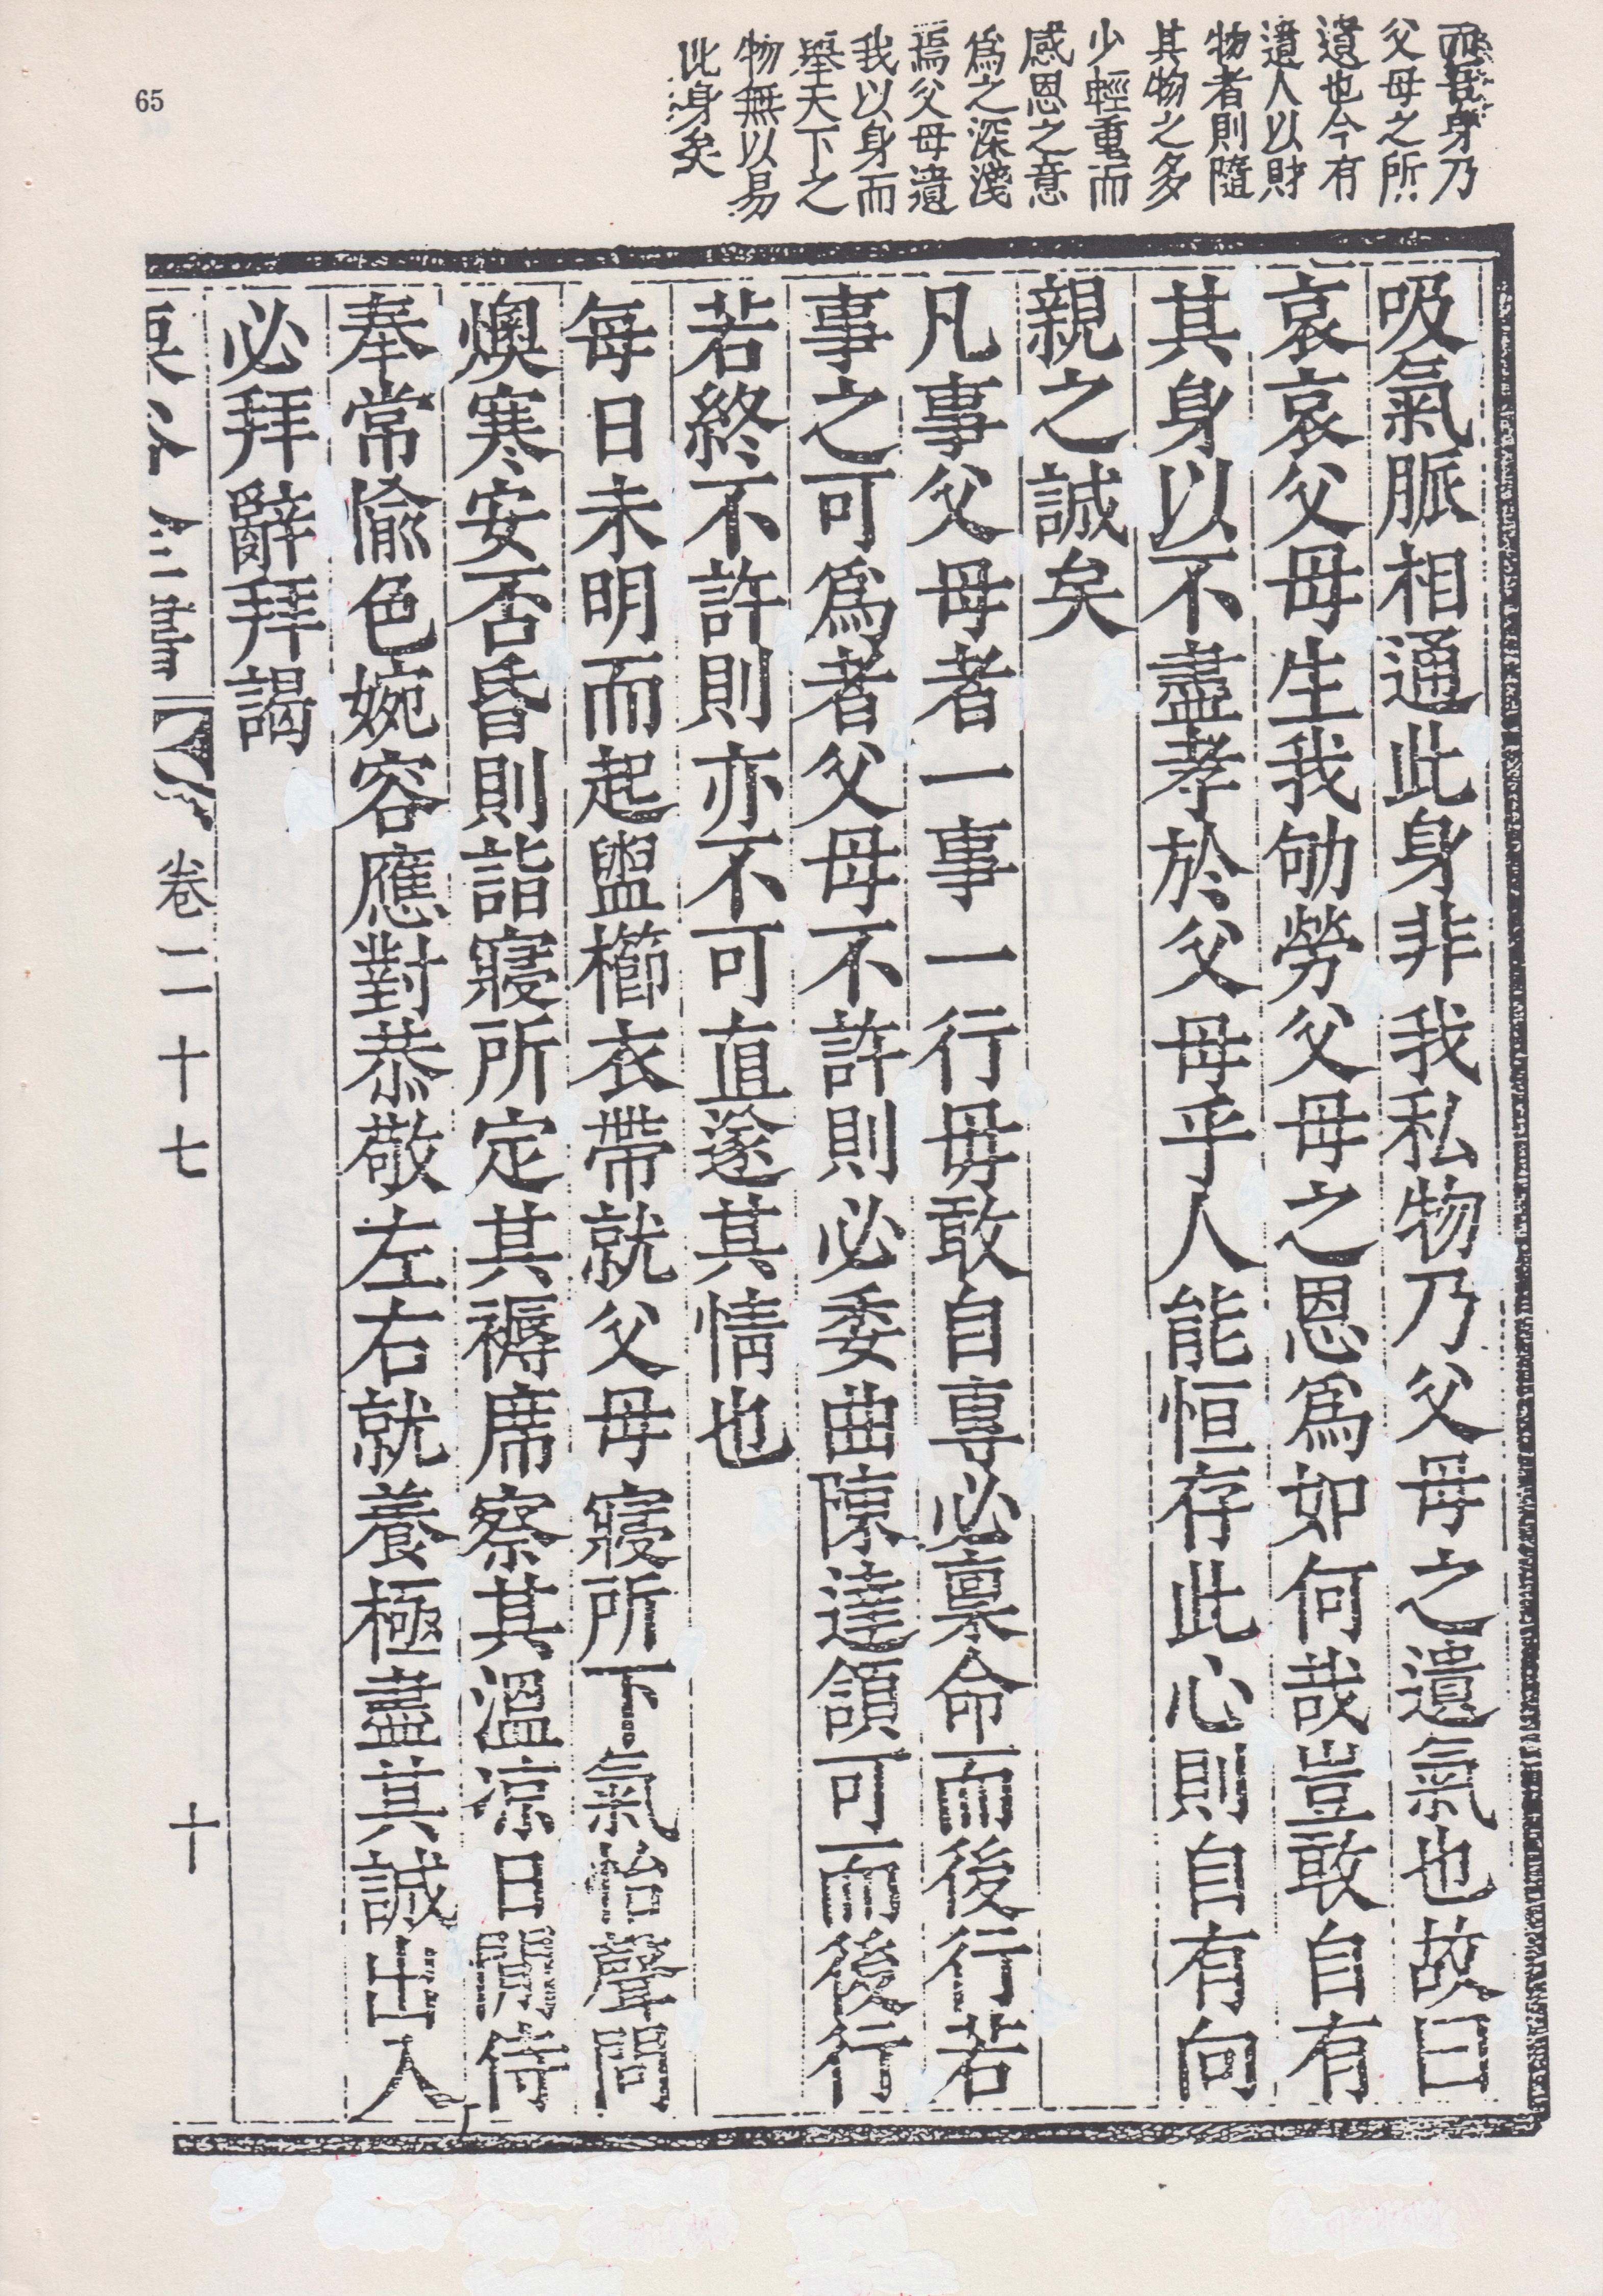 65
而吾身乃
父母之所
遺也今有
遺人以財
物者則隨
其物之多
少輕重而
感恩之意
爲之深淺
焉父母遺
我以身而
舉天下之
物無以易
此身矣
吸氣脈相通此身非我私物乃父母之遺氣也故曰
哀哀父母生我劬勞父母之恩爲如何哉豈敢自有
其身以不盡孝於父母乎人能恒存此心則自有向
親之誠矣
凡事父母者一事一行毋敢自專必稟命而後行若
事之可爲者父母不許則必委曲陳達頷可而後行
若終不許則亦不可直遂其情也
每日未明而起盥櫛衣帶就父母寢所下氣怡聲問
燠寒安否昏則詣寢所定其褥席察其溫凉日間侍
奉常愉色婉容應對恭敬左右就養極盡其誠出入
必拜辭拜謁
卷二十七
十